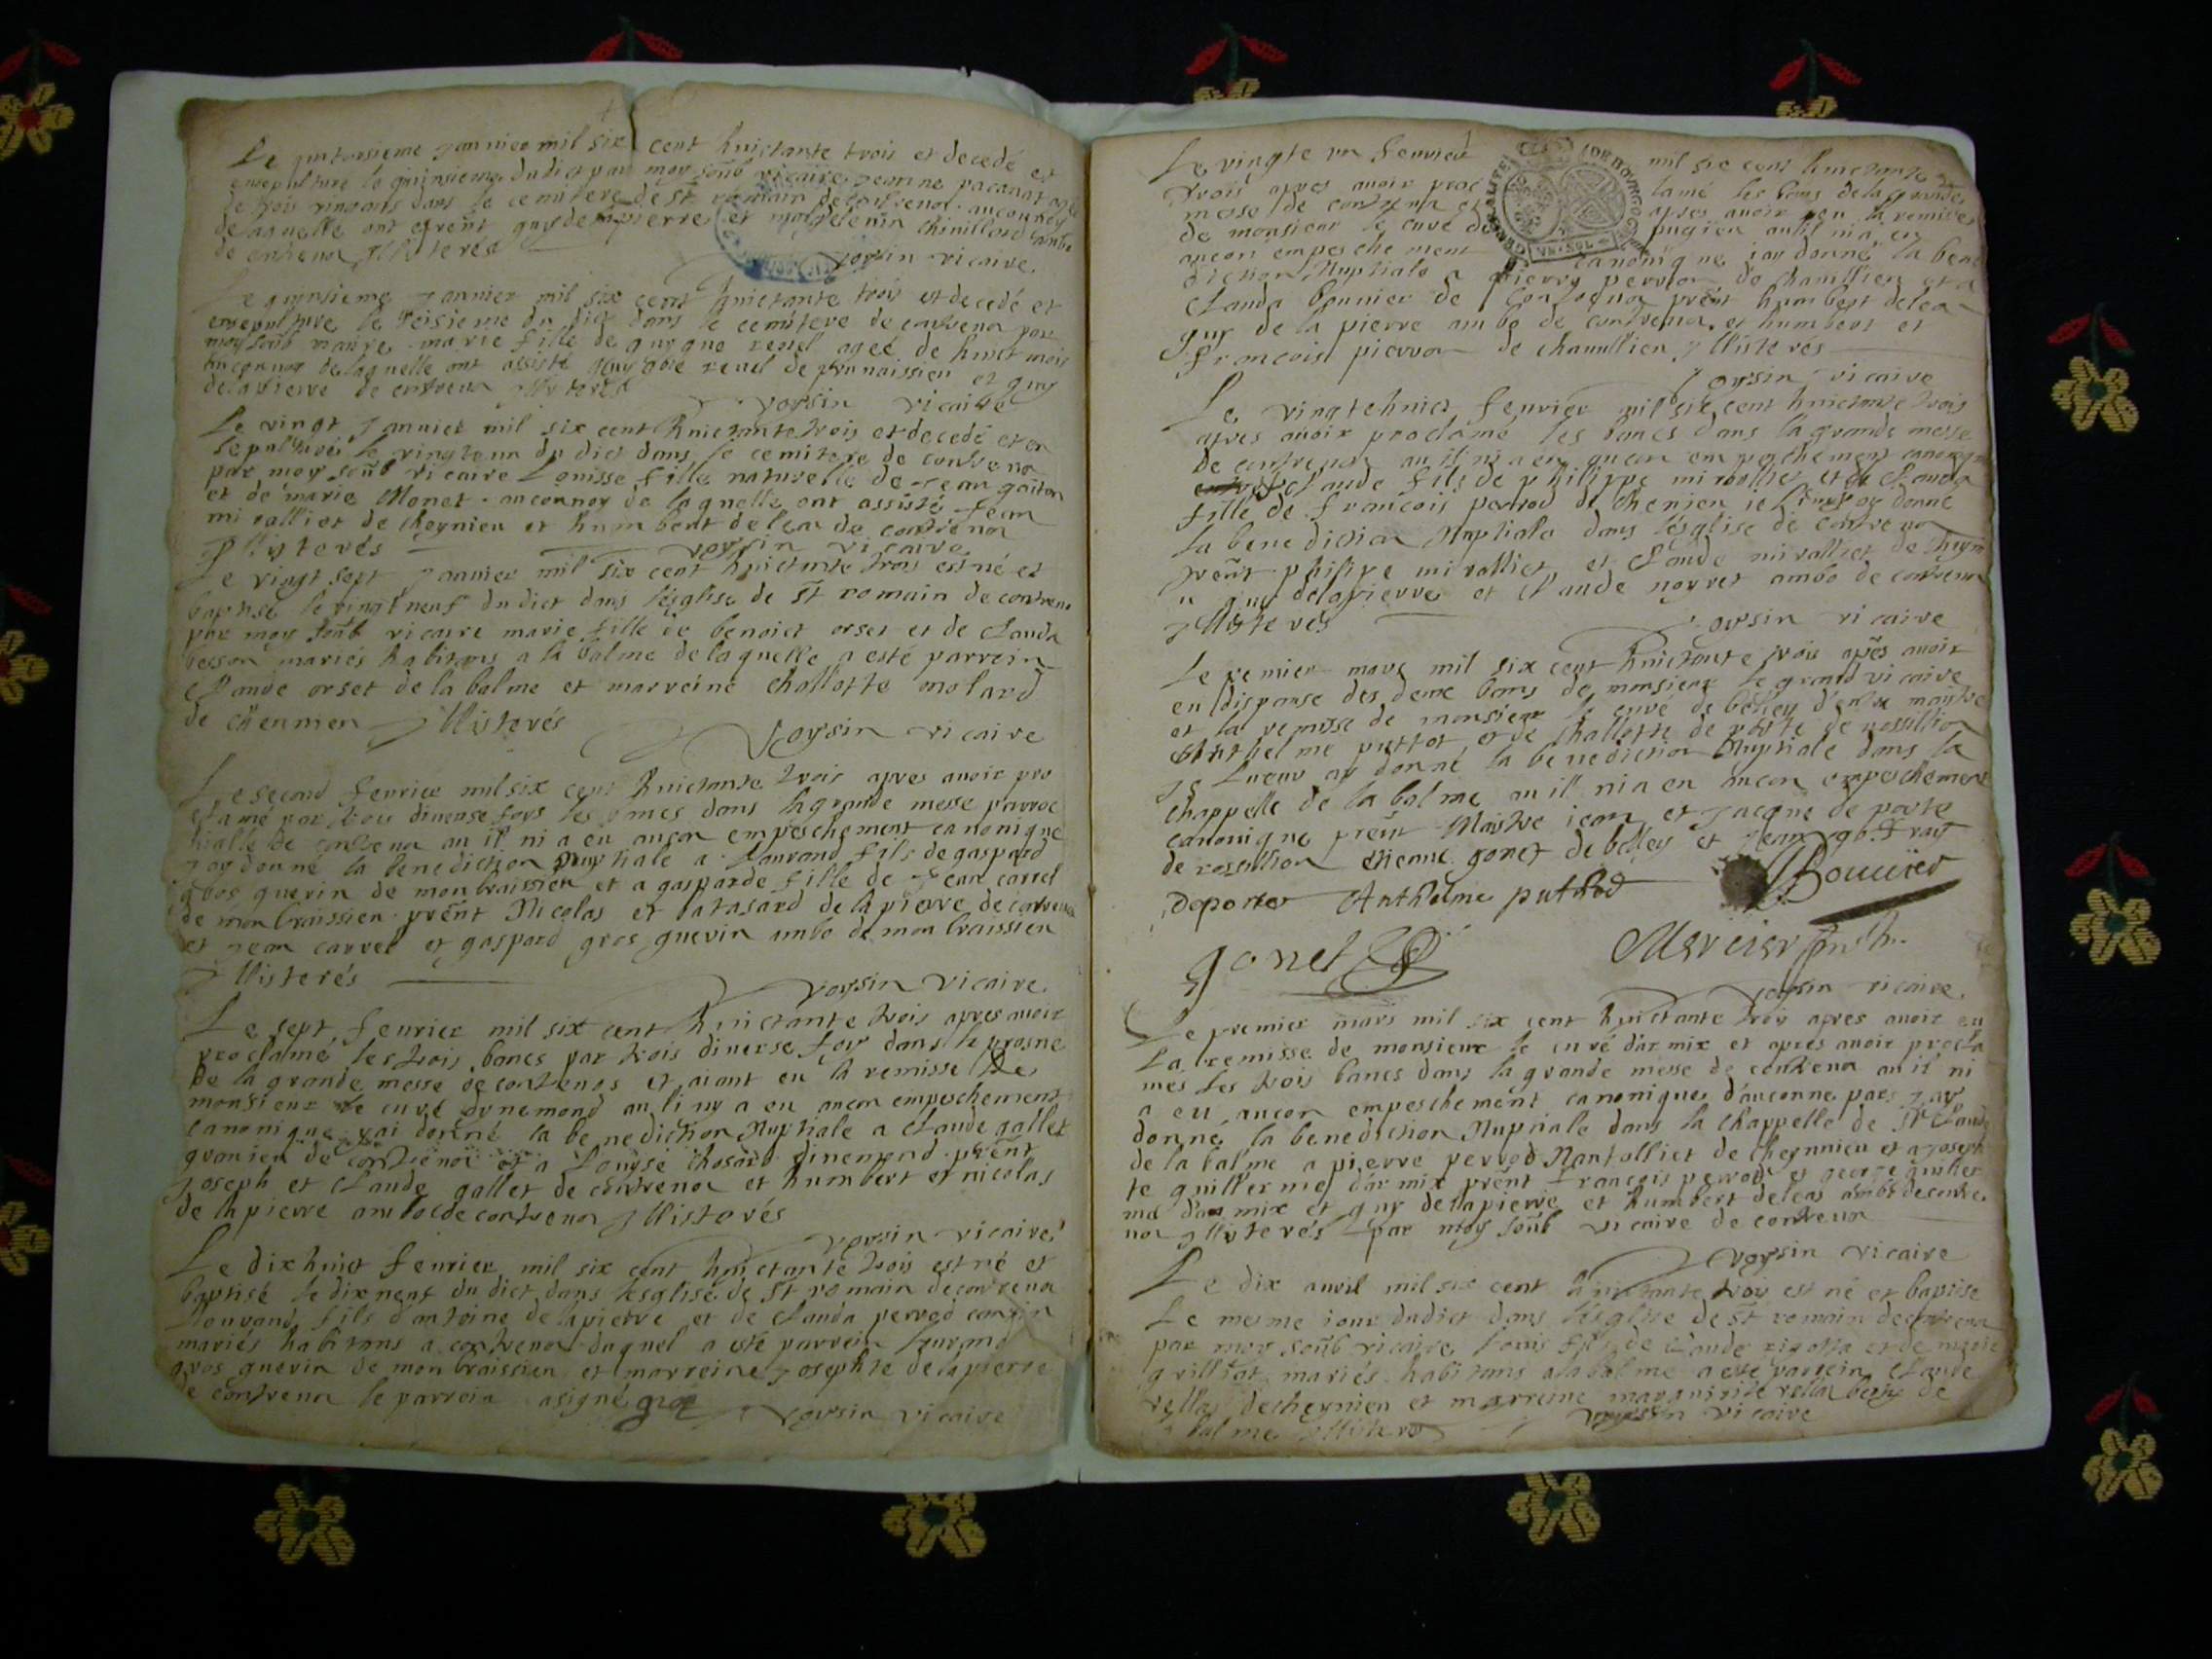 Le quatorsieme Januier mil six cent huictante trois et decedé et
ensepulture le quinsieme du dict par moy soub vicaire Jeanne pacanat
de trois vingt ans dans le cemitere de st romain de contrenoz
de laquelle ont et prent guy de lapierre et
de contrenoz Illisterés
Voysin vicaire
Le quinsieme Januier mil six cent huictante trois et decedé et
ensepulture le seisieme du dict dans le cemitere de contrenoz par
moy soub vicaire marie fille de guygue reuel ageé de huict mois
au connoy de laquelle ont assisté guygue reuel de et guy
delapierre de contrenoz Illisterés
Voysin vicaire
Le vingt Januier mil six cent huictante trois et decedé et en
sepulturé le vingt un du dict dans le cemitere de contrenoz
par moy soub vicaire Louisse fille naturelle de Jean gaiton
et de marie Monet au connoy de laquelle ont assisté Jean
miralliet de cheynieu et humbert delea de contrenoz
Illisterés
Voysin vicaire
Le vingt sept Januier mil six cent huictante trois est né et
baptisé le vingt neuf du dict dans lesglise de st romain de contrenoz
par moy soub vicaire marie fille de benoict orset et de Clauda
besson mariés habitans a la balme de laquelle a esté parrein
Claude orset de la balme et marreine challotte molard
de Illisterés
Voysin vicaire
Le second feurier mil six cent huictante trois apres auoir pro
clamé par trois diuerse foys les bancs dans la grande messe parroc
hialle de contrenoz ou il ni a eu aucon empeschement canonique
Jay donné la benediction Nuptiale a Laurand fils de gaspard
gros guerin de monbraissieu et a gasparde fille de Jean carrel
de monbraissieu prent Nicolas et batasard de la pierre de contrenoz
et Jean carrel et gaspard gros guerin ambo de mon braissieu
Illisterés
Voysin vicaire
Le sept feurier mil six cent huictante trois apres auoir
proclamé les trois bancs par trois diuerse foys dans le prosne
de la grande messe de contrenos et aiant eu la remisse de
monsieur le curé dynemond ou li ny a eu aucon empeschement
canonique jai donné la benediction Nuptiale a Claude gallet
de contrenoz et a Louyse dinemond prent
Joseph et Claude gallet de contrenoz et humbert et nicolas
de la pierre ambo de contrenoz Illisterés
Voysin vicaire
Le dixhuict feurier mil six cent huictante trois est né et
baptisé le dixneuf du dict dans lesglise de st romain de contrenoz
Lourand fils dantoine de lapierre et de Clauda perrod
mariés habitans a contrenoz duquel a esté parrein Laurand
gros guerin de mon braissieu et marreine Josephte de lapierre
de contrenoz le parrein a signé gros
Voysin vicaire
Le vingte un feurier mil six cent huictante
trois apres auoir proclamé les bans de la grande
messe de contrenoz et apres auoir eu la remisse
de monsieur le curé de pugieu ou il ni a eu
aucon empeschement canonique jay donné la bene
diction Nuptiale a pierre perrod de chauillieu et a
Clauda bonnier de prent humbert delea
guy de la pierre ambo de contrenoz et humbert et
francois pierron de chauullieu Illisterés
GENERALITE DE BOURGOGNE
Voysin vicaire
Le vingtehuict feurier mil six cent huictante trois
apres auoir proclamé les bancs dans la grande messe
de contrenoz ou il ni a eu aucon empeschement canonique
Claude fils de philippe miralliet et de Clauda
fille de francois perrod de chenieu je donné
la benediction Nuptiale dans lesglise de contrenoz
prent philipe miralliet et Claude miralliet de
guy delapierre et Claude noyret ambo de contrenoz
Illisterés
Voysin vicaire
Le premier mars mil six cent huictante trois apres auoir
eu dispanse des deux bans de monsieur le grand vicaire
et la remisse de monsieur le curé de belley dentre maistre
Anthelme puttot et de challotte de porte de rossillion
je ay donné la benediction Nuptiale dans la
chappelle de la balme ou il ni a eu aucon empeschement
canonique prent Maistre jean et Jacque de porte
de rossillion etienne gonet de belley et Jean
Deporter Anthelme puthod Bouuier
gonet Mercier
Voysin vicaire
Le premier mars mil six cent huictante trois apres auoir eu
la remisse de monsieur le curé darmix et apres auoir procla
mes les trois bancs dans la grande messe de contrenoz ou il ni
a eu aucon empeschement canonique dauconne par jay
donné la benediction Nuptiale dans la chappelle de St Claude
de la balme a pierre perrod Nantalliet de cheynnieu et a Joseph
te guillerme darmix prent francois perrod et george guiller
me darmix et guy delapierre et humbert deleas ambo de contre
noz Illisterés par moy soub vicaire de contrenoz
Voysin vicaire
Le dix auril mil six cent huictante trois est né et baptise
Le mesme jour dudict dans lesglise de st romain de contrenoz
par moy soub vicaire Louis fils de Claude rigotta et de marie
grilliat mariés habitans a la balme a esté parrein Claude
rellaz decheynieu et marreine de
balme Illisteres
Voysin vicaire